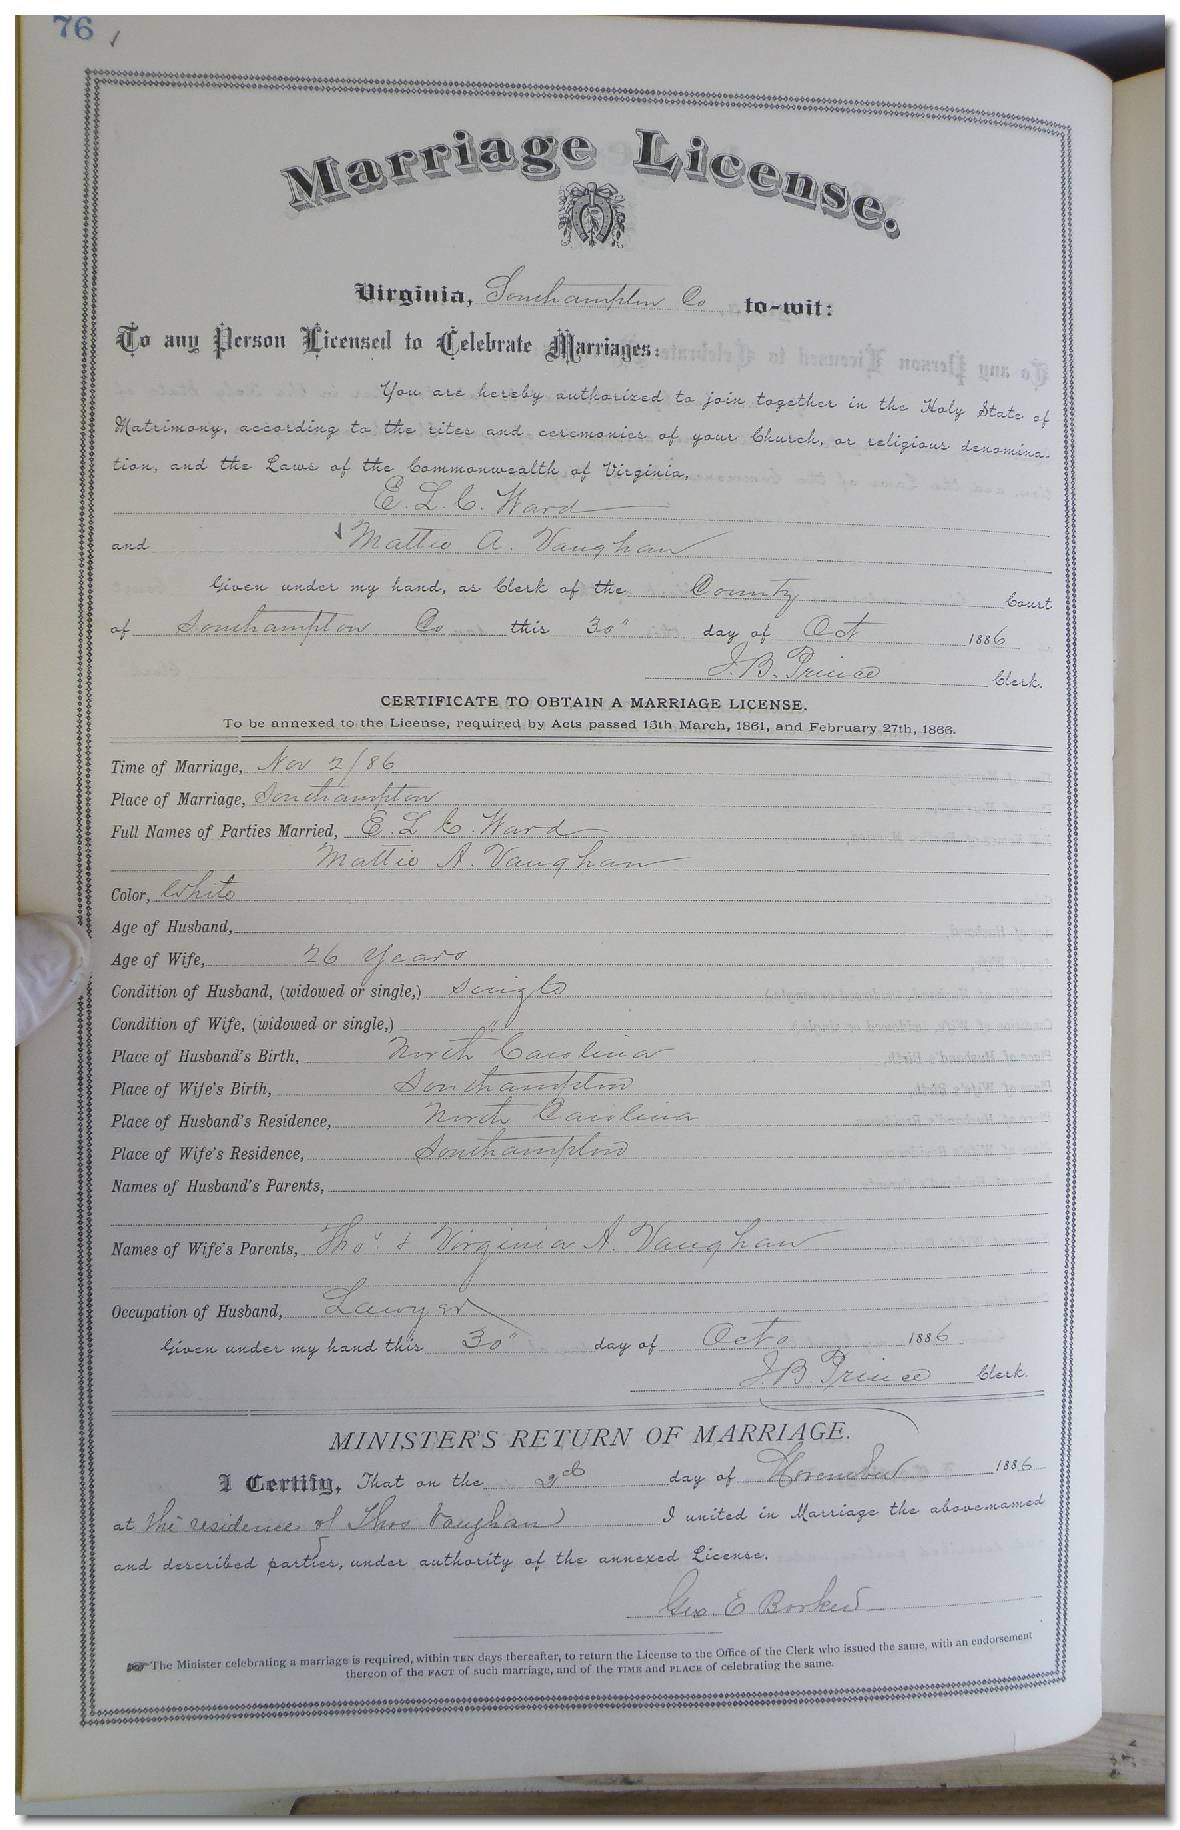 76
Marriage License.
Virginia, Southampton Co to-wit:
To any Person Licensed to Celebrate Marriages:
You are hereby authorized to join together in the Holy State of
Matrimony, according to the rites and ceremonies of your Church, or religious denomina-
tion, and the Laws of the Commonwealth of Virginia,
E. L. C. Ward
and Mattie A. Vaughan
Given under my hand, as Clerk of the County Court
of Southampton Co this 30" day of Oct 1886
J. B. Prince Clerk.
CERTIFICATE TO OBTAIN A MARRIAGE LICENSE.
To be annexed to the License, required by Acts passed 15th March, 1861, and February 27th, 1866.
Time of Marriage, Nov 2/86
Place of Marriage, Southampton
Full Names of Parties Married, E. L. C. Ward
Mattie A. Vaughan
Color, White
Age of Husband,
Age of Wife, 26 Years
Condition of Husband, (widowed or single,) Single
Condition of Wife, (widowed or single,) "
Place of Husband's Birth, North Carolina
Place of Wife's Birth, Southampton
Place of Husband's Residence, North Carolina
Place of Wife's Residence, Southampton
Names of Husband's Parents,
Names of Wife's Parents, Thos & Virginia A. Vaughan
Occupation of Husband, Lawyer
Given under my hand this 30" day of Octo 1886
J. B. Prince Clerk.
MINISTER'S RETURN OF MARRIAGE.
I Certify, That on the 2d day of November 1886
at the residence of Thos Vaughan I united in Marriage the above-named
and described parties, under authority of the annexed License.
Geo. E Booker
The Minister celebrating a marriage is required, within TEN days thereafter, to return the License to the Office of the Clerk who issued the same, with an endorsement
thereon of the FACT of such marriage, and of the TIME and PLACE of celebrating the same.